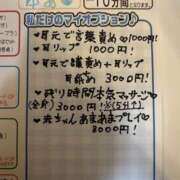 10分間となり
私だけのマイオプション♪
・耳元で言葉責め♡1000円!
・耳リップ 1000円!
・耳元で言葉責め+耳リップ
耳舐め 3000円!
・残り時間本気マッサージ
(全身) 3000円!※(5分↑)
・赤ちゃんあまあまプレイ♡
3000円!